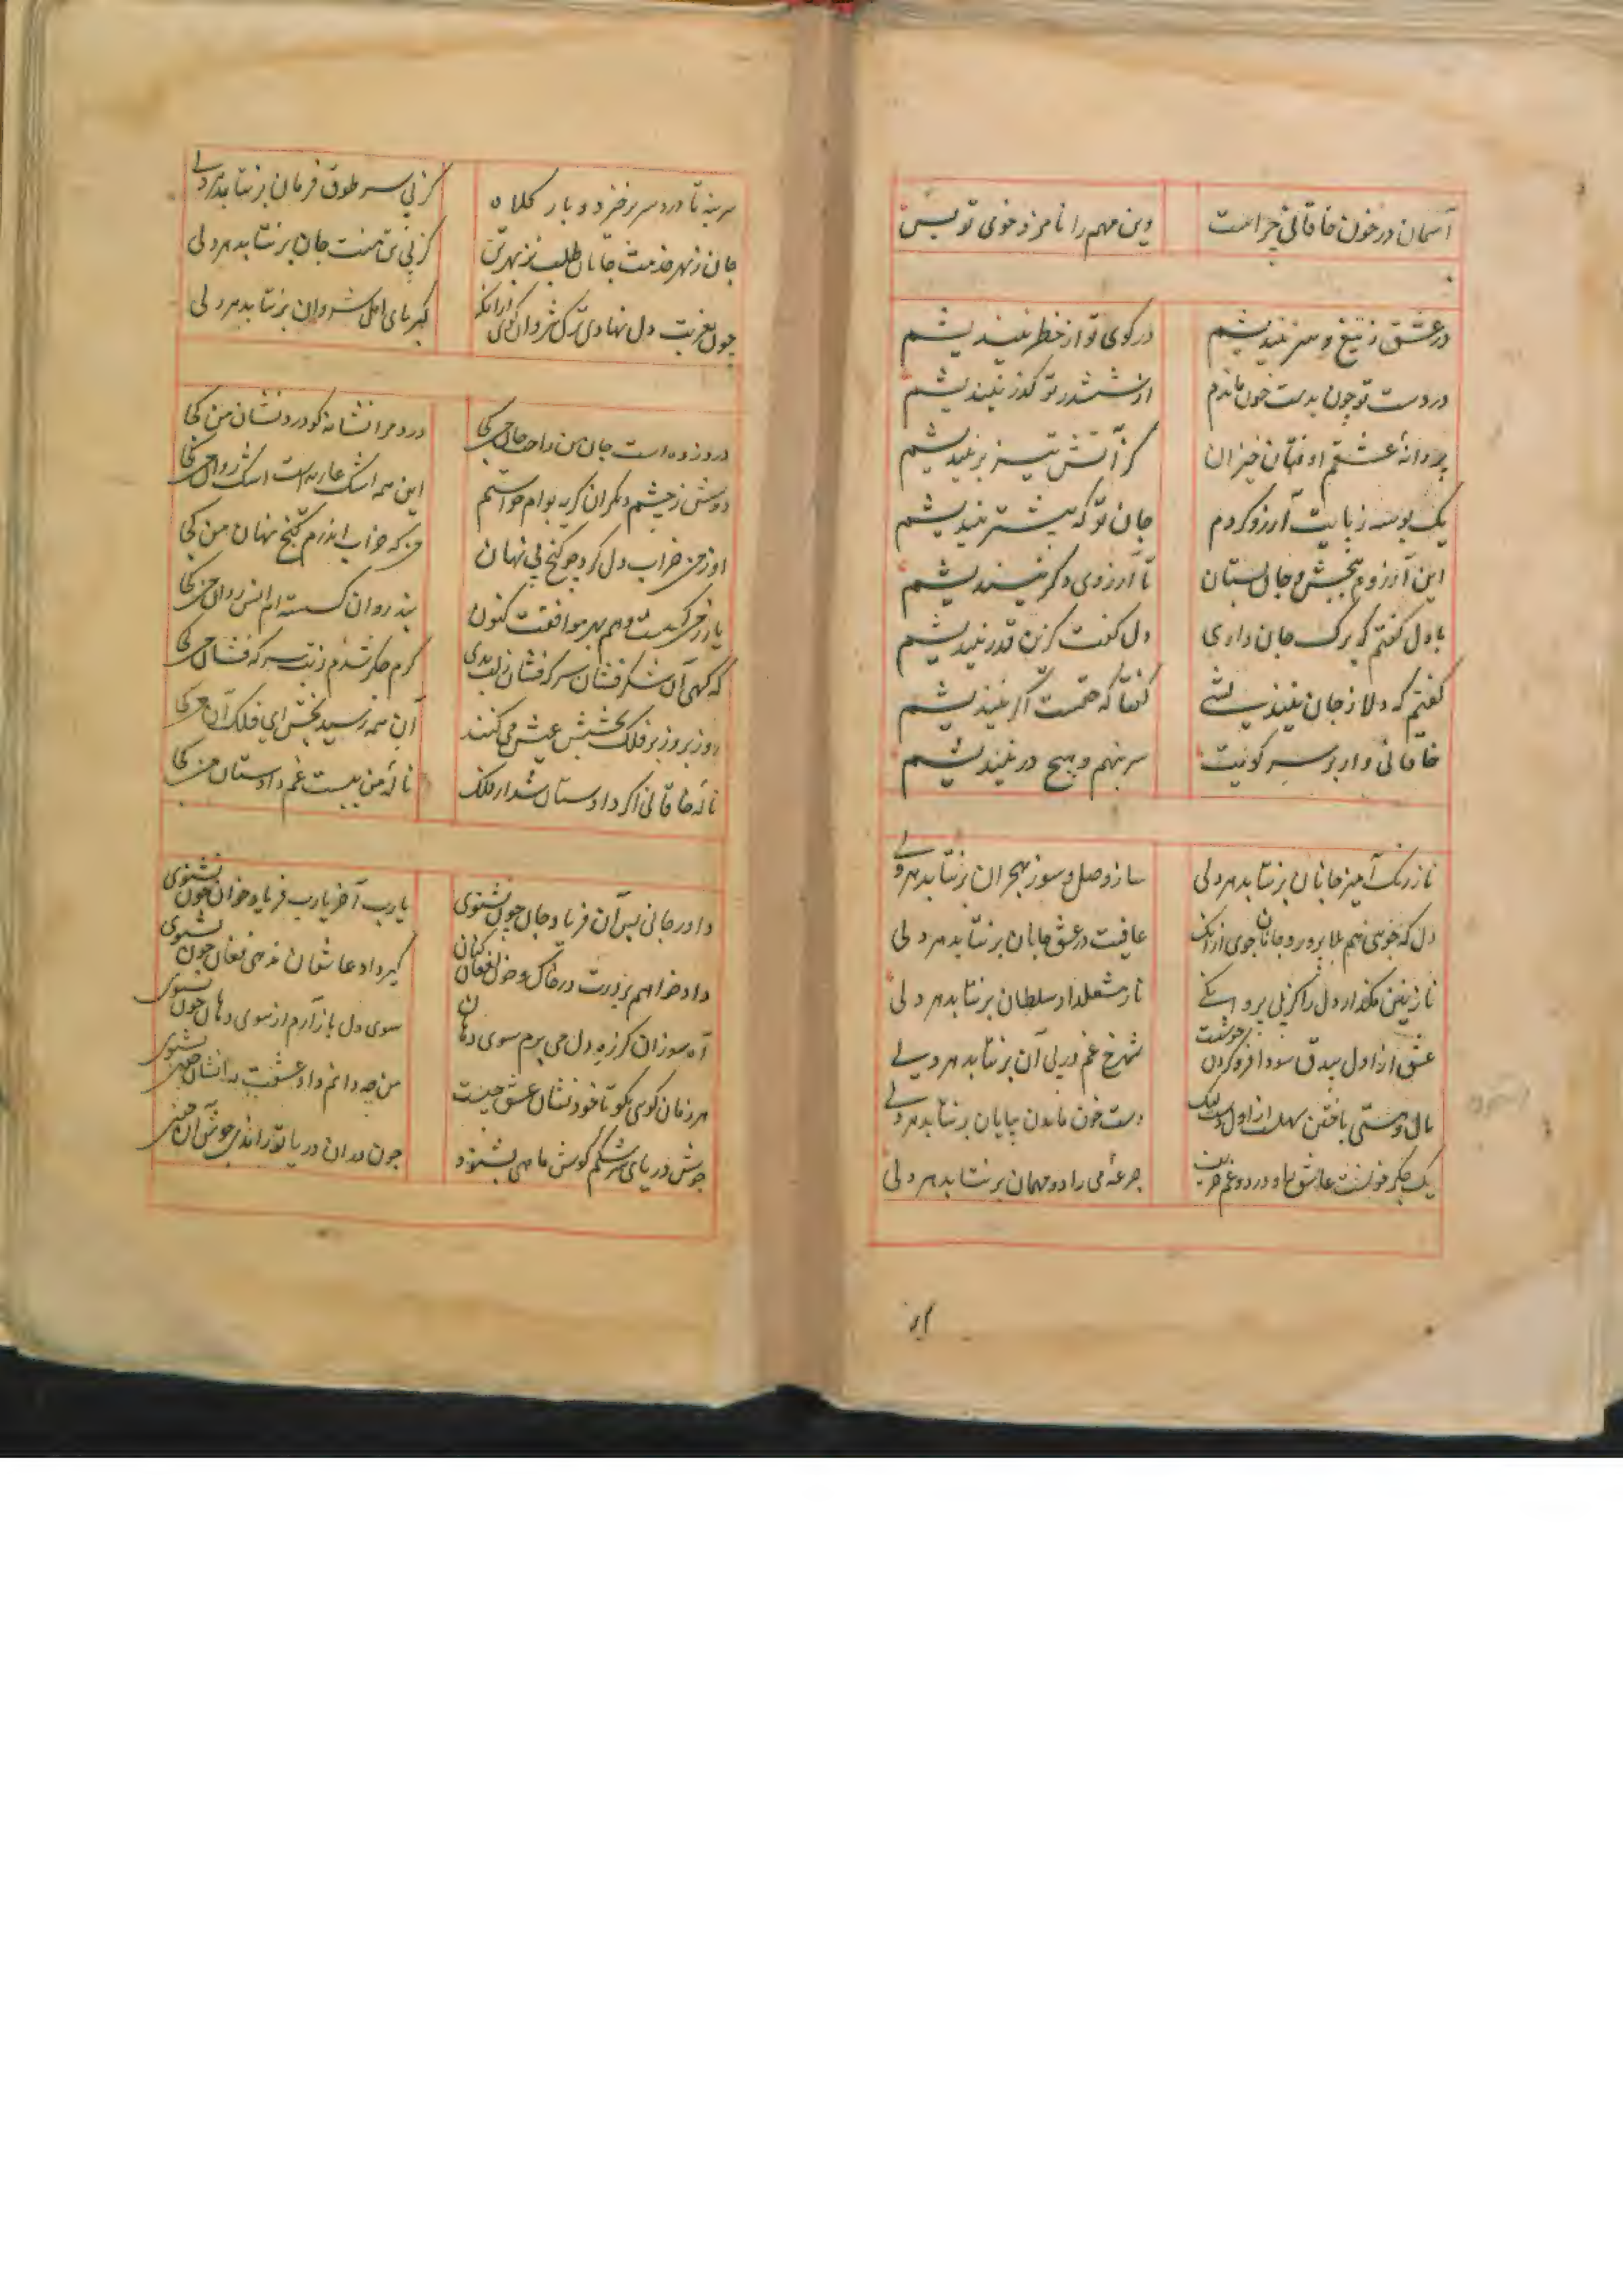 آسمان در خون خاقانی چراست وین مهم را نامزد خوی تو بس
در عشق ز تیغ و سر نیندیشم در کوی تو از خطر نیندیشم
در دست تو چون بدست خون ماندم از ششدر تو گذر نیندیشم
پروانهٔ عشقم اوفتان خیزان کز آتش تیز پر نیندیشم
یک بوسه ز پایت آرزو کردم جان تو که بیشتر نیندیشم
این آرزوم ببخش و جان بستان تا آرزوی دگر نیندیشم
با دل گفتم که برگ جان داری دل گفت کزین قدر نیندیشم
گفتم که دلا ز جان نیندیشی گفتا که حقست اگر نیندیشم
خاقانی وار بر سر کویت سر بنهم و هیچ در نیندیشم
ناز رنگ آمیز جانان برنتابد هر دلی ساز وصل و سوز هجران برنتابد هر دلی
دل که جوئی هم بلا پرور و جانان جوی ازانک عافیت در عشق جانان برنتابد هر دلی
نازنین مگذار دل را کز پی پروانگی ناز مشعلدار سلطان برنتابد هر دلی
عشق از اول بیدق سودا فرو کردن خوشست شهرخ غم در پی آن برنتابد هر دلی
مال و هستی باختن سهلست از اول دست لیک دست خون ماندن بپایان برنتابد هر دلی
یک جگر خونست عاشق را و درد و غم حریف جرعهٔ می را دو مهمان برنتابد هر دلی
سر بنه تا درد سر برخیزد و بار کلاه کز پی سر طوق فرمان برنتابد هر دلی
جان ز بهر خدمت جانان طلب نز بهر تن کز پی تن منت جان برنتابد هر دلی
چون بغربت دل نهادی ترک شروان گوی ازانکه کبریای اهل شروان برنتابد هر دلی
درد زده است جان من راحت جان من کجا درد مرا نشانه کو درد نشان من کجا
دوش ز چشم دیگران گریه بوام خواستم این همه اشک عاریه است اشک روان من کجا
او ز من خراب دل کرد چو گنج پی نهان من که خراب اندرم گنج نهان من کجا
یار ز من گسست و هم بهر موافقت کنون بند روان گسسته ام انس روان من کجا
که گهی آن شکر فشان سرکه فشان ز لب بدی گرم جگر شدم ز تب سرکه فشان من کجا
روز بروز بر فلک بخشش عیش می کنند آن همه رسید بخش ای فلک آن من کجا
نالهٔ خاقانی اگر دادستان شد از فلک نالهٔ من نیست غم دادستان من کجا
داور جانی پس آن فریاد جان چون نشنوی یارب آخر یارب فریاد خوان چون نشنوی
داد خواهم بر درت در خاک و خون افغان کنان گیر داد عاشقان ندهی فغان چون نشنوی
آه سوزان کز ره دل می برم سوی دهان سوی دل باز آرم از سوی دهان چون نشنوی
هر زمان گوئی بگو تا خود نشان عشق چیست من چه دانم داد عشقت را نشان چون نشنوی
جوش دریای سرشکم گوش ماهی بشنود چون در آن دریا تو راندی جوش آن چون نشنوی